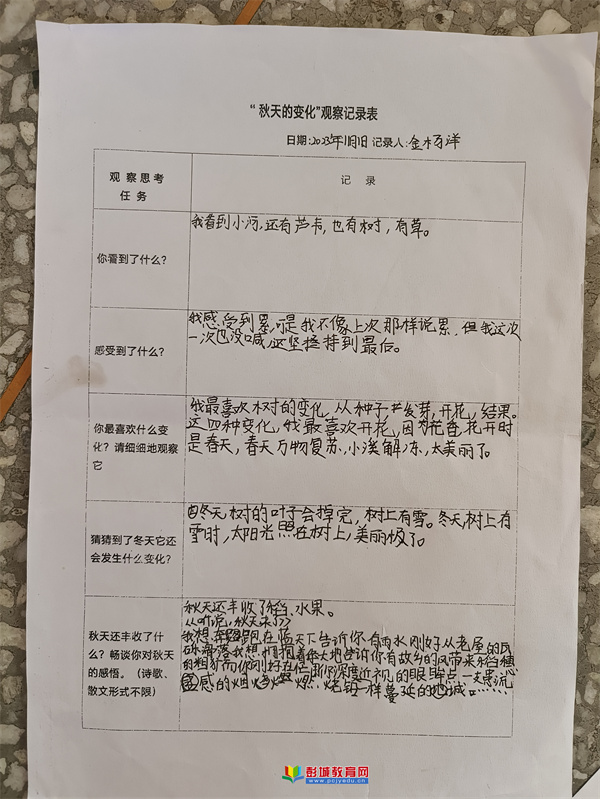 “秋天的变化”观察记录表
日期:2023年11月1日 记录人:金杨洋
观察思考
任务
记录
你看到了什么?
我看到小河,还有芦苇,也有树,有草。
感受到了什么?
我感受到累,可是我不像上次那样说累,但我这次
一次也没喊,还坚持到最后。
你最喜欢什么变
化?请细细地观察
它
我最喜欢树的变化,从种子、发芽,开花,结果。
这四种变化,我最喜欢开花,因为花香,花开时
是春天,春天万物复苏,小溪解冻,太美丽了。
猜猜到了冬天它还
会发生什么变化?
冬天,树的叶子会掉完,树上有雪。冬天,树上有
雪时,太阳光照在树上,美丽极了。
秋天还丰收了什
么?畅谈你对秋天
的感悟。(诗歌、
散文形式不限)
秋天还丰收了稻、水果。
从听说,秋天来了
我想 跑在临天下告诉你 有雨水刚好从老屋的瓦
我想 拥抱着 大地告诉你有故乡的风带来稻穗
的粗犷而你刚好在 深度近视的眼眸点一支
感的烟 燃 烧 一样蔓延的
彭城教育网
www.pcjyedu.cn